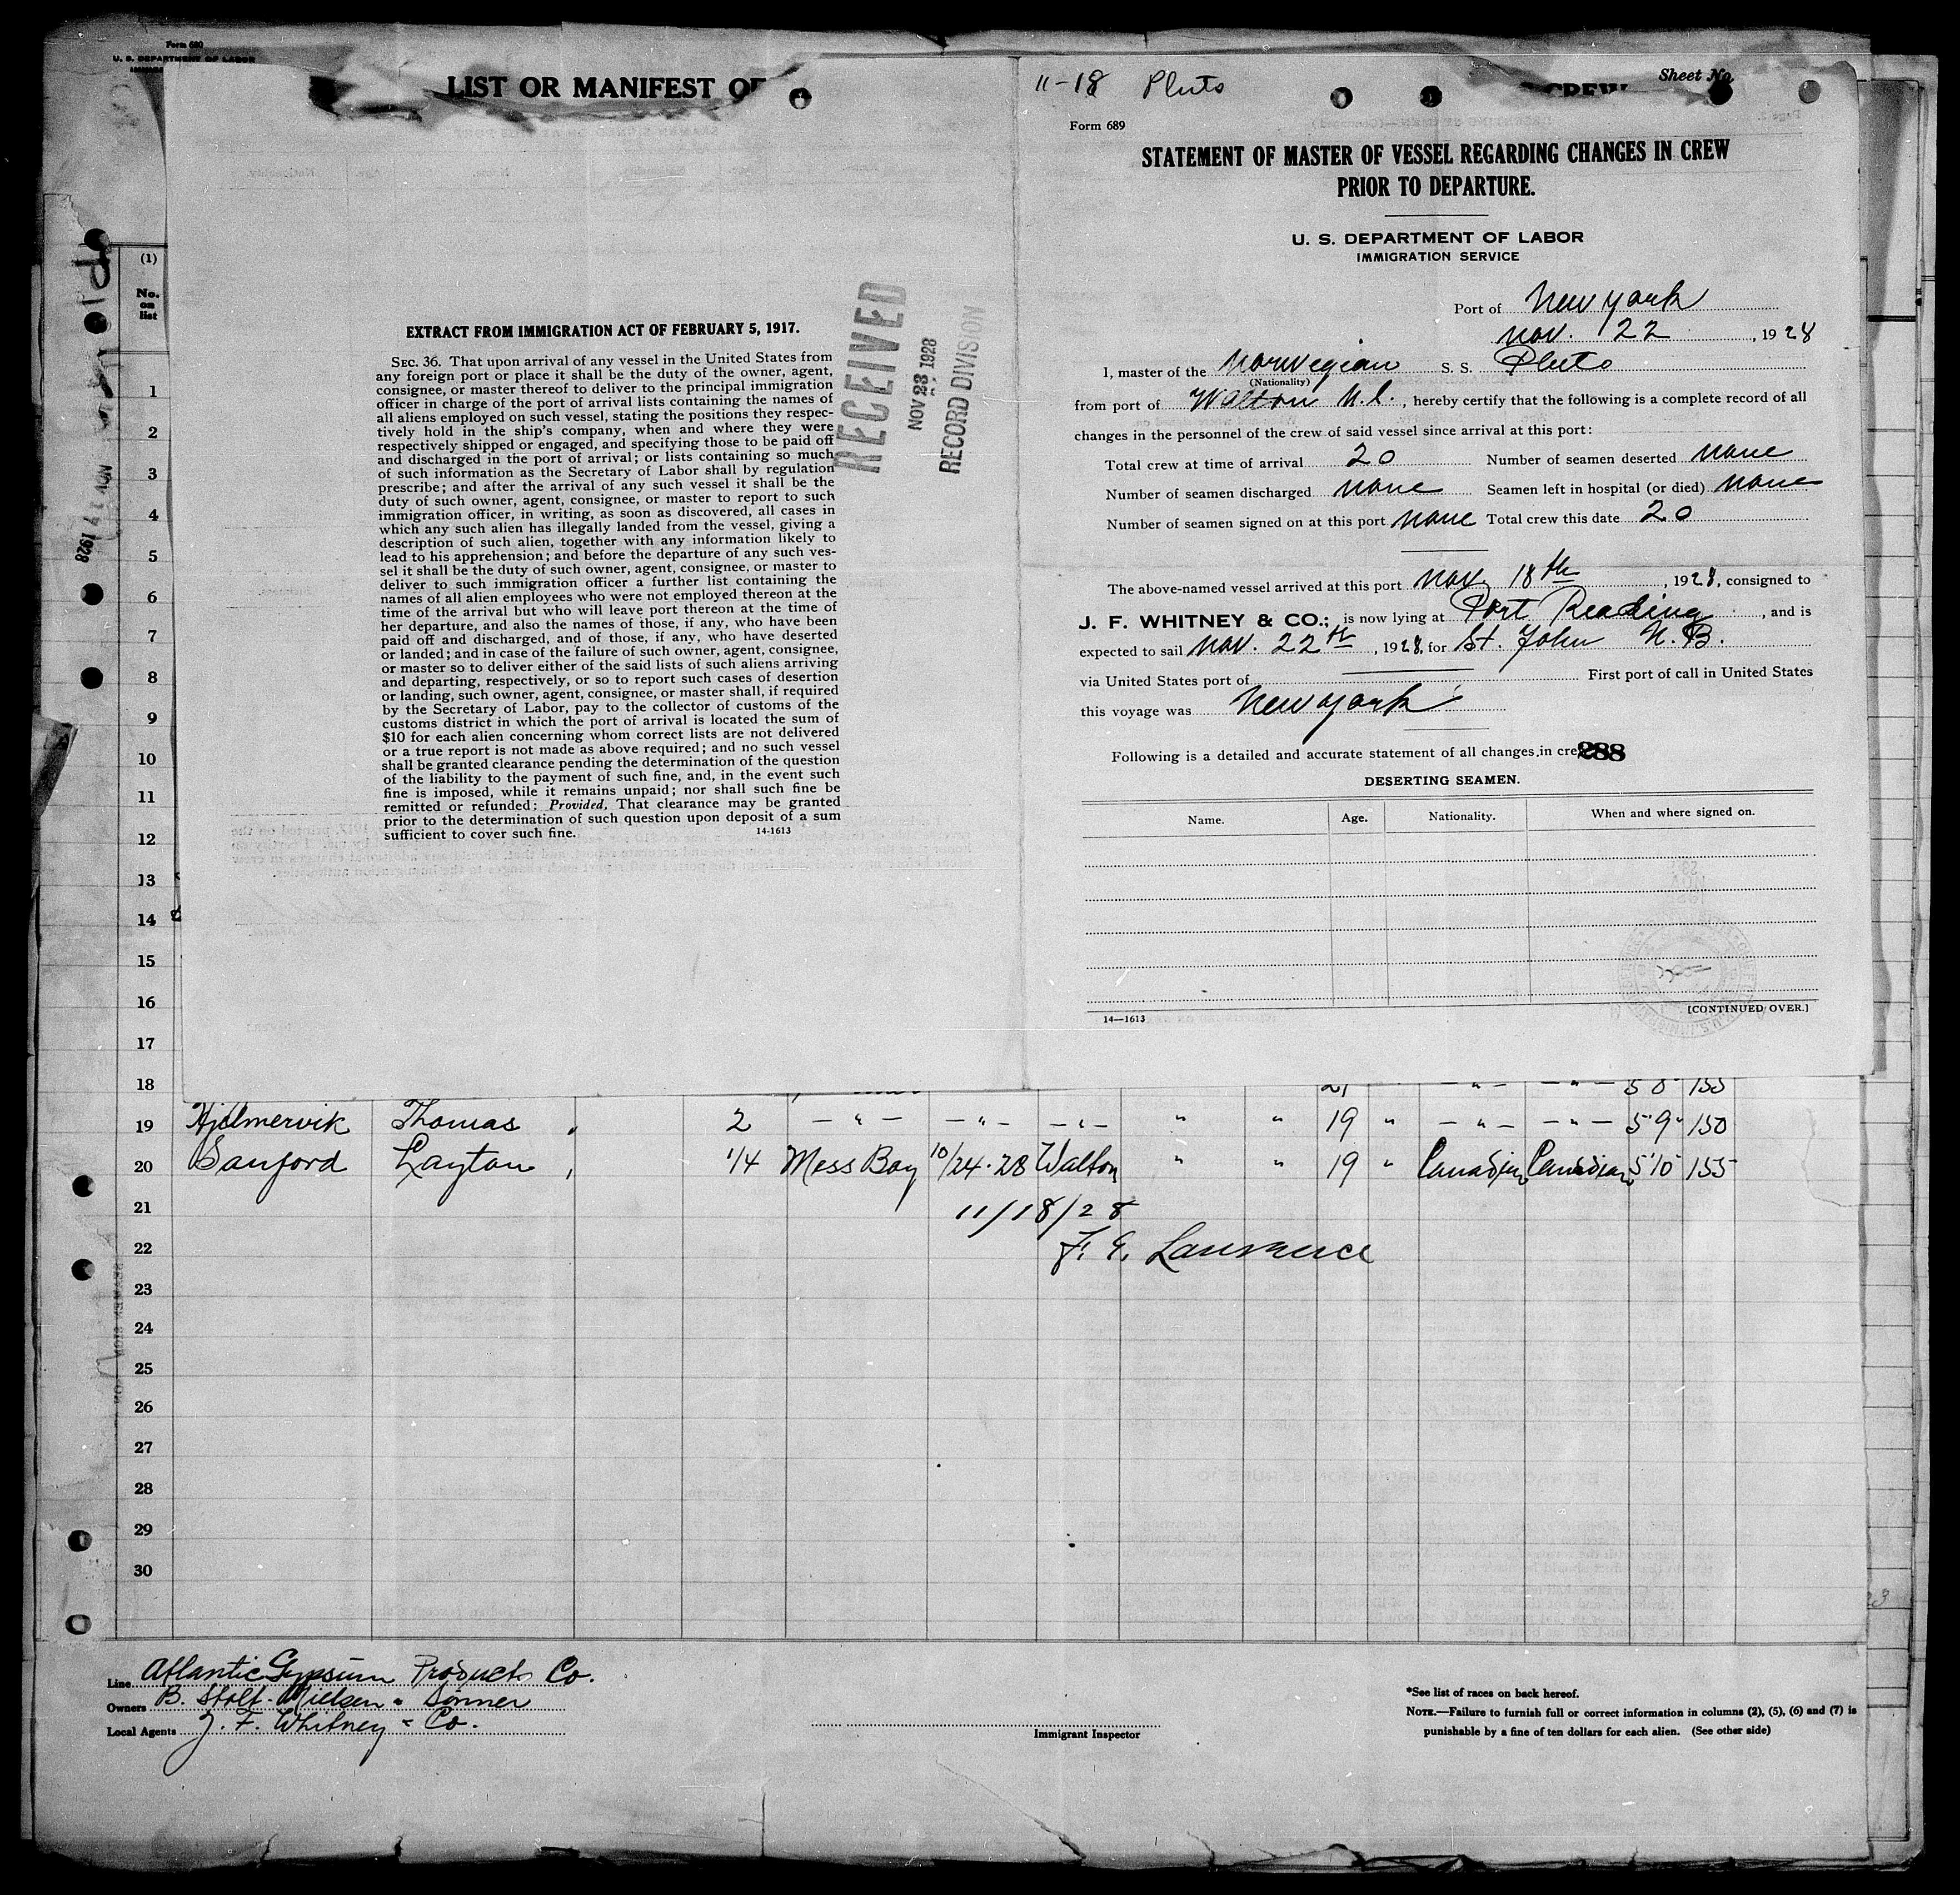 Form 680
U. S. DEPARTMENT OF LABOR
LIST OR MANIFEST OF
CREW
Sheet No
11-18 Pluto
Form 689
STATEMENT OF MASTER OF VESSEL REGARDING CHANGES IN CREW
PRIOR TO DEPARTURE.
U. S. DEPARTMENT OF LABOR
IMMIGRATION SERVICE
Port of New York
Nov. 22, 1928
I, master of the Norwegian S. S. Pluto
(Nationality)
from port of Walton N.S., hereby certify that the following is a complete record of all
changes in the personnel of the crew of said vessel since arrival at this port:
Total crew at time of arrival 20 Number of seamen deserted none
Number of seamen discharged none Seamen left in hospital (or died) none
Number of seamen signed on at this port none Total crew this date 20
The above-named vessel arrived at this port Nov. 18th, 1928, consigned to
J. F. WHITNEY & CO.; is now lying at Port Reading, and is
expected to sail Nov. 22th, 1928, for St. John N.B.
via United States port of First port of call in United States
this voyage was New York
Following is a detailed and accurate statement of all changes in cre
288
DESERTING SEAMEN.
Name. Age. Nationality. When and where signed on.
14—1613
[CONTINUED OVER.]
EXTRACT FROM IMMIGRATION ACT OF FEBRUARY 5, 1917.
SEC. 36. That upon arrival of any vessel in the United States from
any foreign port or place it shall be the duty of the owner, agent,
consignee, or master thereof to deliver to the principal immigration
officer in charge of the port of arrival lists containing the names of
all aliens employed on such vessel, stating the positions they respec-
tively hold in the ship's company, when and where they were
respectively shipped or engaged, and specifying those to be paid off
and discharged in the port of arrival; or lists containing so much
of such information as the Secretary of Labor shall by regulation
prescribe; and after the arrival of any such vessel it shall be the
duty of such owner, agent, consignee, or master to report to such
immigration officer, in writing, as soon as discovered, all cases in
which any such alien has illegally landed from the vessel, giving a
description of such alien, together with any information likely to
lead to his apprehension; and before the departure of any such ves-
sel it shall be the duty of such owner, agent, consignee, or master to
deliver to such immigration officer a further list containing the
names of all alien employees who were not employed thereon at the
time of the arrival but who will leave port thereon at the time of
her departure, and also the names of those, if any, who have been
paid off and discharged, and of those, if any, who have deserted
or landed; and in case of the failure of such owner, agent, consignee,
or master so to deliver either of the said lists of such aliens arriving
and departing, respectively, or so to report such cases of desertion
or landing, such owner, agent, consignee, or master shall, if required
by the Secretary of Labor, pay to the collector of customs of the
customs district in which the port of arrival is located the sum of
$10 for each alien concerning whom correct lists are not delivered
or a true report is not made as above required; and no such vessel
shall be granted clearance pending the determination of the question
of the liability to the payment of such fine, and, in the event such
fine is imposed, while it remains unpaid; nor shall such fine be
remitted or refunded: Provided, That clearance may be granted
prior to the determination of such question upon deposit of a sum
sufficient to cover such fine.
14-1613
RECEIVED
NOV 23 1928
RECORD DIVISION
NOV 17 1928
(1)
No.
on
list
1
2
3
4
5
6
7
8
9
10
11
12
13
14
15
16
17
18 21 — " — — " — 5 8 155
19 Hjelmervik Thomas " 2 — " — — " — — " — " " 19 " — " — — " — 5'9" 150
20 Sanford Layton " 1/4 Mess Boy 10/24-28 Walton " " 19 " Canadian Canadian 5'10 155
21 11/18/28
22 F. E. Lawrence
23
24
25
26
27
28
29
30
Line Atlantic Gypsum Products Co.
Owners B. Stolt-Nielsen & Sønner
Local Agents J. F. Whitney & Co.
Immigrant Inspector
*See list of races on back hereof.
NOTE.—Failure to furnish full or correct information in columns (2), (5), (6) and (7) is
punishable by a fine of ten dollars for each alien. (See other side)